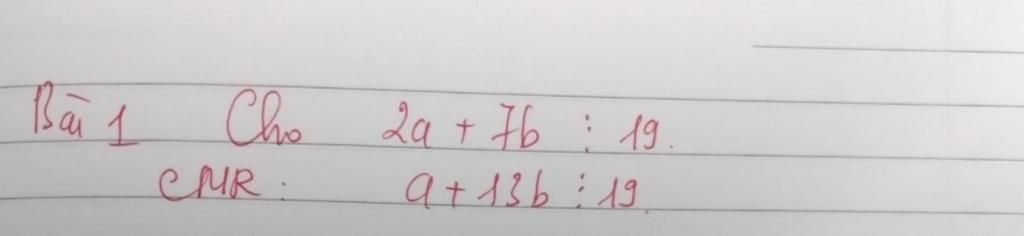 Bài 1 Cho 2a + 7b ⋮ 19.
CMR: a + 13b ⋮ 19.